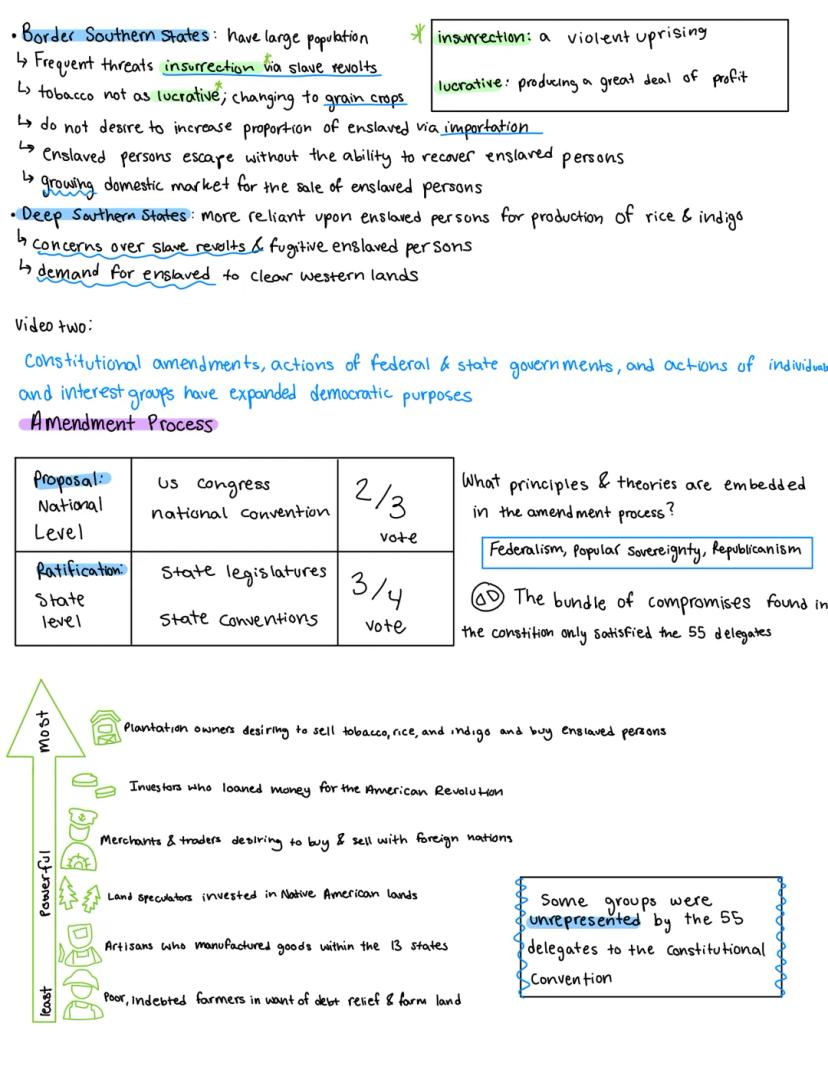 • Border Southern States: have large population
↳ Frequent threats insurrection* via slave revolts
↳ tobacco not as lucrative*; changing to grain crops
↳ do not desire to increase proportion of enslaved via importation
↳ enslaved persons escape without the ability to recover enslaved persons
↳ growing domestic market for the sale of enslaved persons
* insurrection: a violent uprising
lucrative: producing a great deal of profit
• Deep Southern States: more reliant upon enslaved persons for production of rice & indigo
↳ concerns over slave revolts & fugitive enslaved persons
↳ demand for enslaved to clear western lands
Video two:
Constitutional amendments, actions of federal & state governments, and actions of individuals
and interest groups have expanded democratic purposes
Amendment Process
Proposal:
National
Level
US Congress
national convention
2/3
vote
Ratification:
State
level
State legislatures
State conventions
3/4
vote
What principles & theories are embedded
in the amendment process?
Federalism, Popular Sovereignty, Republicanism
The bundle of compromises found in
the constition only satisfied the 55 delegates
most
powerful
least
Plantation owners desiring to sell tobacco, rice, and indigo and buy enslaved persons
Investors who loaned money for the American Revolution
Merchants & traders desiring to buy & sell with foreign nations
Land speculators invested in Native American lands
Artisans who manufactured goods within the 13 states
Poor, indebted farmers in want of debt relief & farm land
Some groups were
unrepresented by the 55
delegates to the Constitutional
Convention